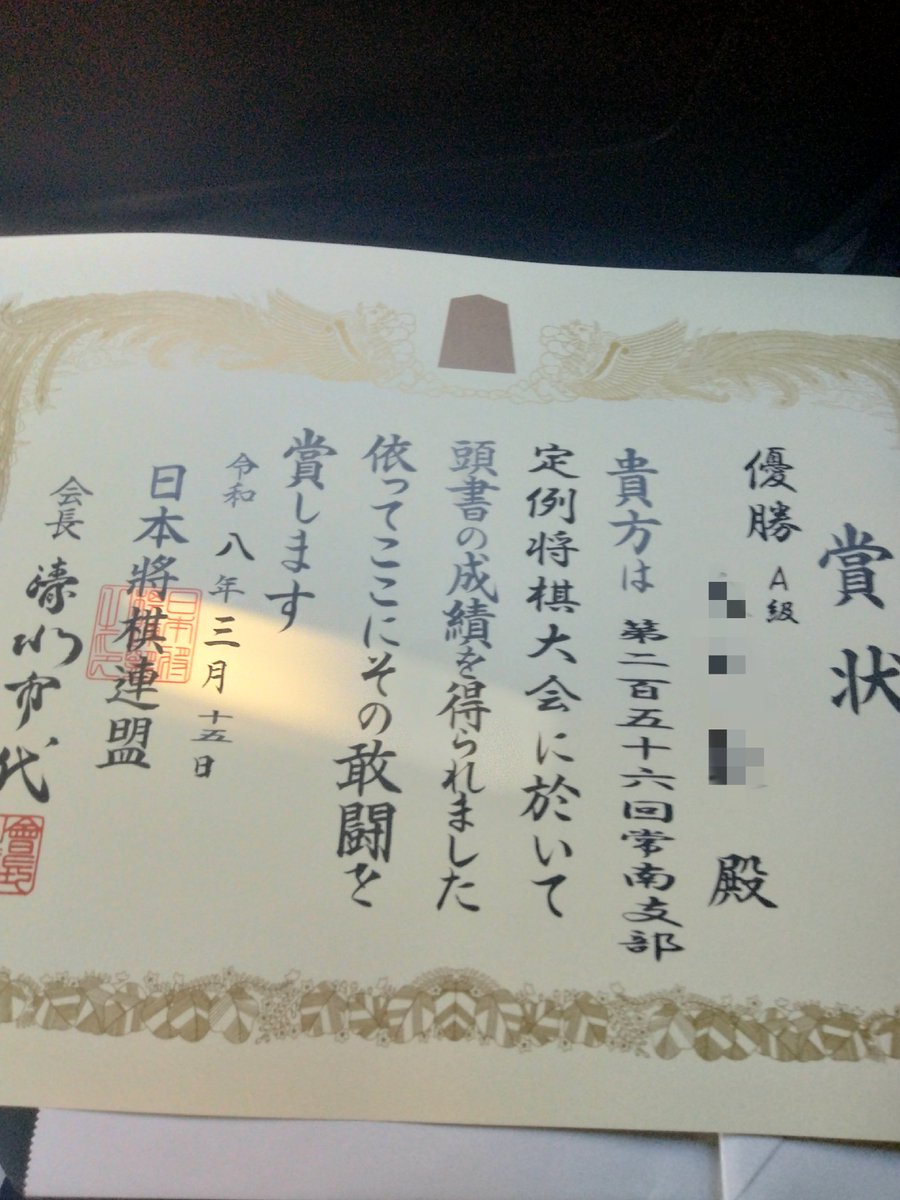 賞状
優勝 A級
殿
貴方は 第二百五十六回常南支部
定例将棋大会に於いて
頭書の成績を得られました
依ってここにその敢闘を
賞します
令和八年三月十五日
日本將棋連盟
会長 清水市代
會長